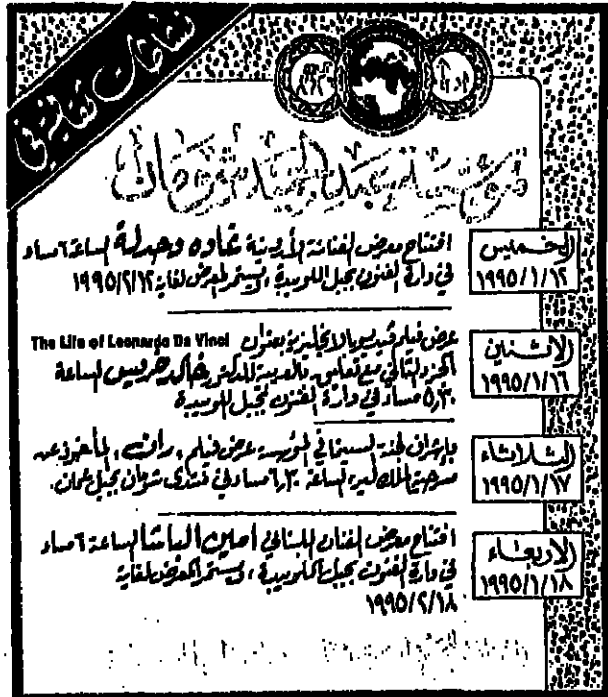 نشاطات ثقافية في
مؤسسة عبد الحميد شومان
الخميس
١٩٩٥/١/١٢
افتتاح معرض الفنانة الأردنية غادة دحدلة الساعة ٦ مساء
في دارة الفنون بجبل اللويبدة، ويستمر المعرض لغاية ١٩٩٥/٢/١٢
الاثنين
١٩٩٥/١/١٦
عرض فيلم فيديو بالانجليزية بعنوان The Life of Leonardo Da Vinci
الجزء الثاني مع تعليق بالعربية للدكتور خالد خريس الساعة
٥,٣٠ مساء في دارة الفنون بجبل اللويبدة
الثلاثاء
١٩٩٥/١/١٧
بإشراف لجنة السينما في المؤسسة عرض فيلم، ران، المأخوذ عن
مسرحية الملك لير الساعة ٦,٣٠ مساء في منتدى شومان بجبل عمان.
الاربعاء
١٩٩٥/١/١٨
افتتاح معرض الفنان اللبناني امين الباشا الساعة ٦ مساء
في دارة الفنون بجبل اللويبدة، ويستمر المعرض لغاية
١٩٩٥/٢/١٨